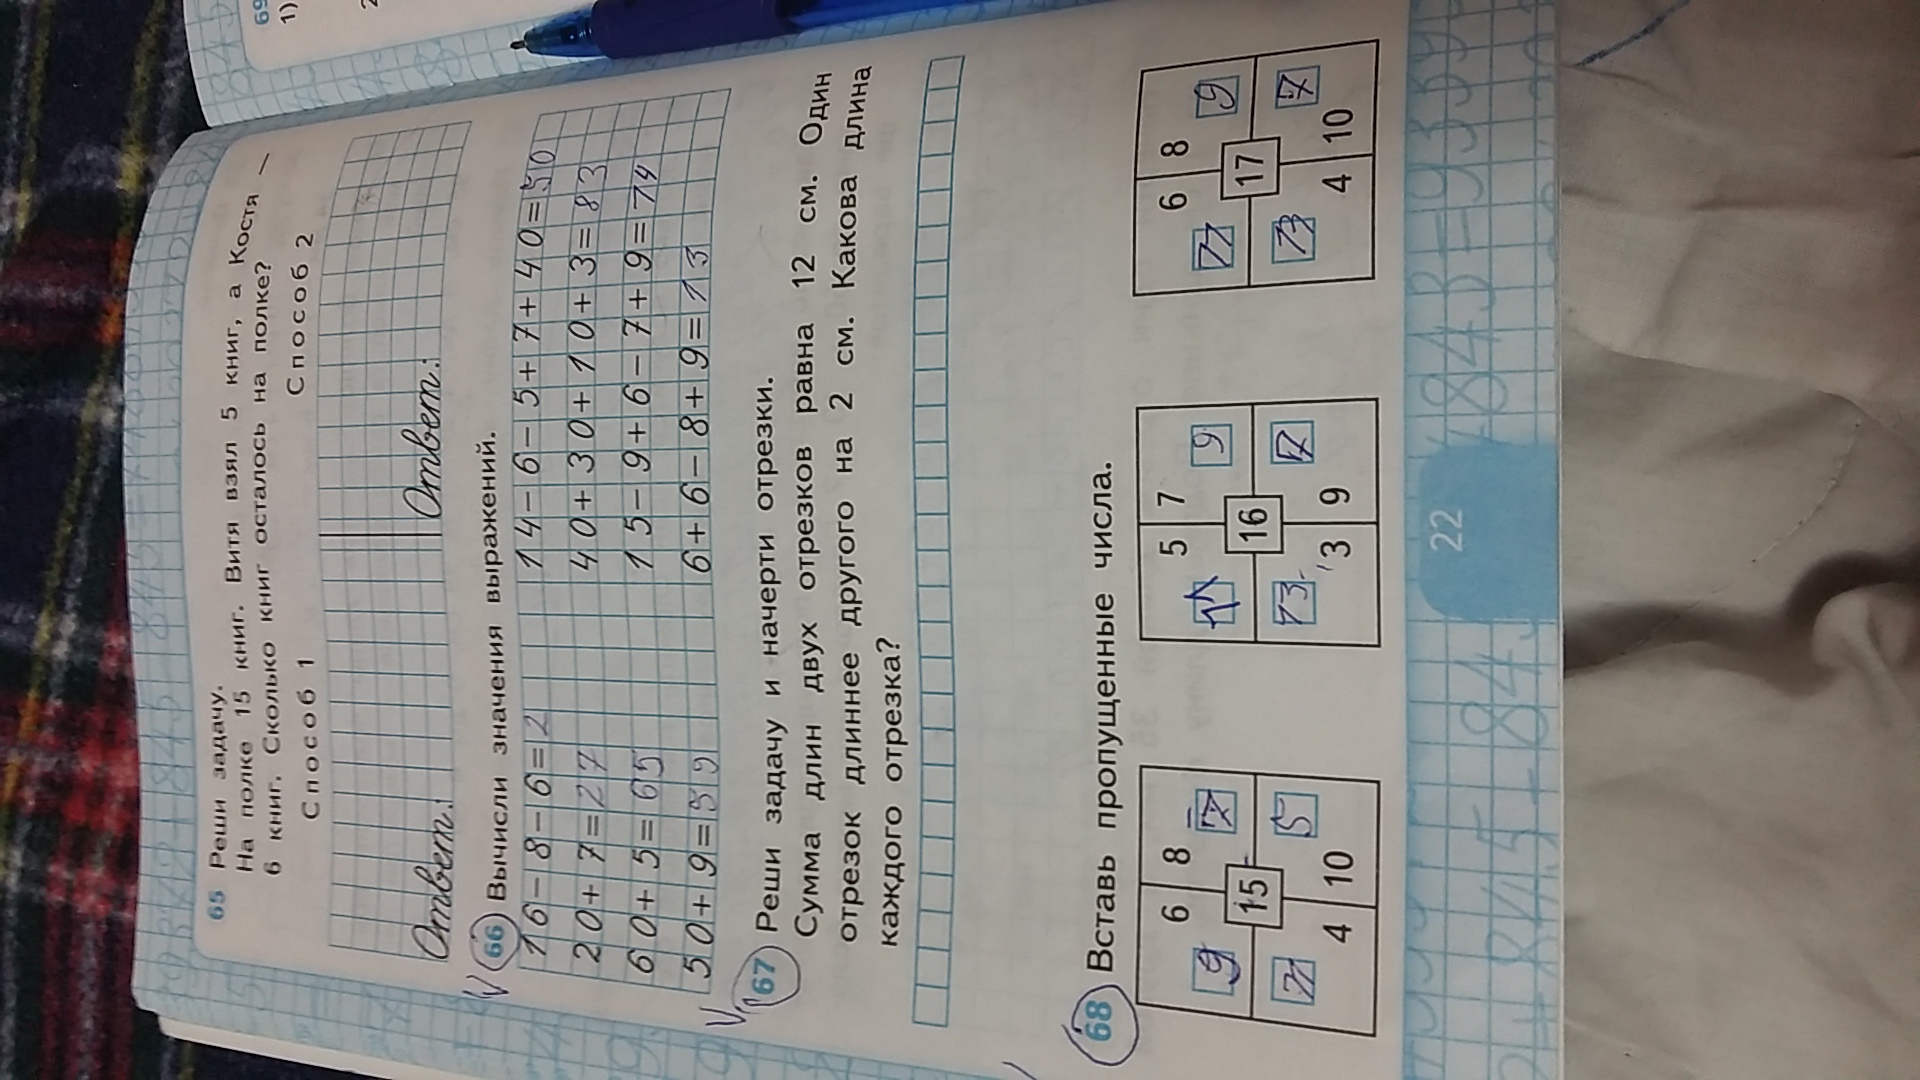 65 Реши задачу.
На полке 15 книг. Витя взял 5 книг, а Костя —
6 книг. Сколько книг осталось на полке?
Способ 1 Способ 2
Ответ: Ответ:
66 Вычисли значения выражений.
16-8-6=2 14-6-5+7+40=50
20+7=27 40+30+10+3=83
60+5=65 15-9+6-7+9=14
50+9=59 6+6-8+9=13
67 Реши задачу и начерти отрезки.
Сумма длин двух отрезков равна 12 см. Один
отрезок длиннее другого на 2 см. Какова длина
каждого отрезка?
68 Вставь пропущенные числа.
6 8 5 7 6 8
9 7 11 9 11 9
15 16 17
11 5 13 7 13 7
4 10 3 9 4 10
22
69
1)
2